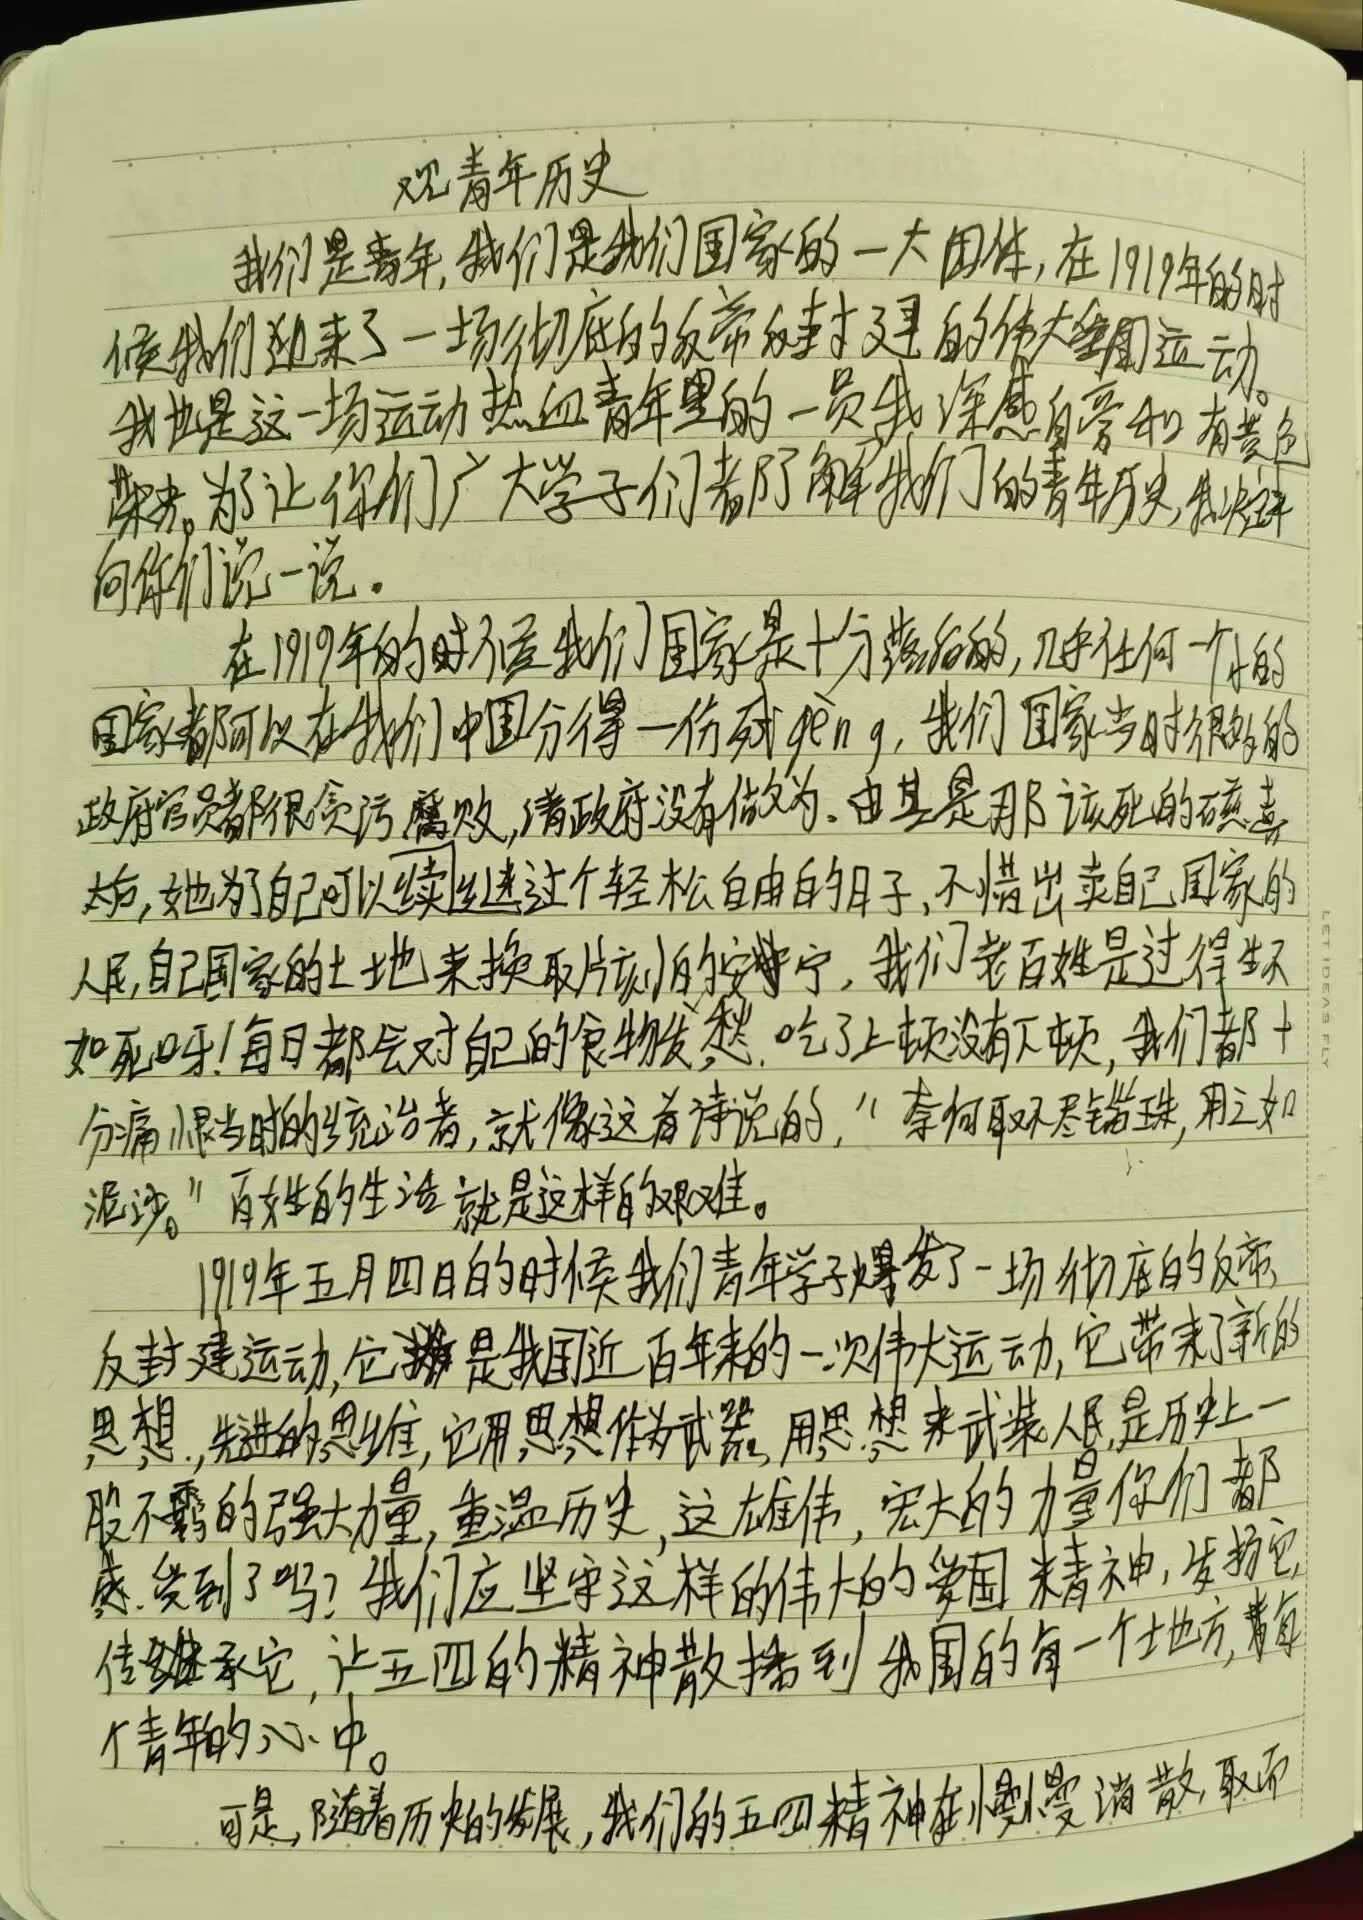 观青年历史
我们是青年,我们是我们国家的一大团体,在1919年的时
候我们迎来了一场彻底的反帝反封建的伟大爱国运动。
我也是这一场运动热血青年里的一员我深感自豪和有
。为了让你们广大学子们都了解我们的青年历史,我决定
向你们说一说。
在1919年的时候我们国家是十分落后的,几乎任何一个的
国家都可以在我们中国分得一份残gēng,我们国家当时很多的
政府官员都很贪污腐败,清政府没有做为。由其是那该死的慈喜
太后,她为了自己可以继续过个轻松自由的日子,不惜出卖自己国家的
人民,自己国家的土地来换取片刻的安宁,我们老百姓是过得生不
如死呀!每日都会对自己的食物发愁,吃了上顿没有下顿,我们都十
分痛恨当时的统治者,就像这首诗说的,“奈何取不尽锱珠,用之如
泥沙。”百姓的生活就是这样的艰难。
1919年五月四日的时候我们青年学子爆发了一场彻底的反帝、
反封建运动,它是我国近百年来的一次伟大运动,它带来了新的
思想,先进的思维,它用思想作为武器,用思想来武装人民,是历史上一
股不的强大力量,重温历史,这雄伟,宏大的力量你们都
感受到了吗?我们应坚守这样的伟大的爱国精神,发扬它,
传继承它,让五四的精神散播到我国的每一个土地方,每
个青年的心中。
可是,随着历史的发展,我们的五四精神在慢慢消散,取而
LET IDEAS FLY